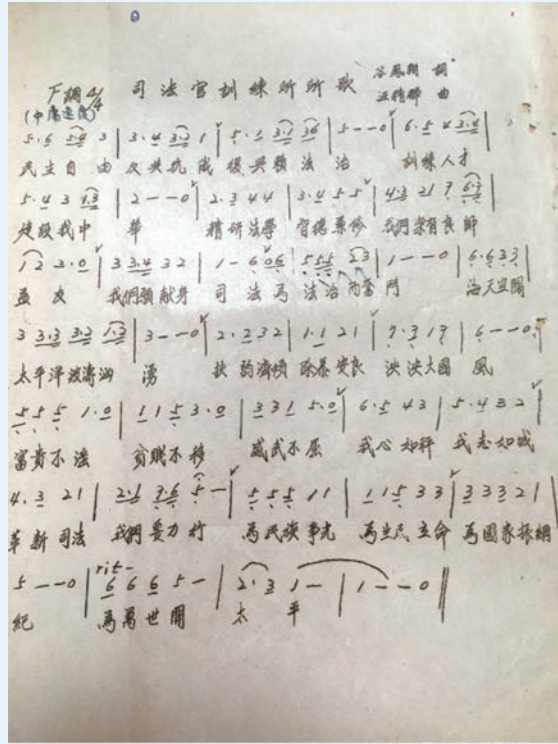 F調 4/4 司法官訓練所所歌 谷鳳翔 詞
(中庸速度) 汪精輝 曲
5·6 5·4 3 | 3·4 3·2 1 | 5·1 3·1 3·6 | 5--0 | 6·5 4 3·4 |
民主自由 反共抗俄 復興賴法治 訓練人才
5·4 3 1·3 | 2--0 | 2·3 4 4 | 3·4 5 5 | 4·3 2 1 7 6·7 |
建設我中華 精研法學 智德兼修 我們崇有良師
1 2 3·0 | 3 3·4 3 2 | 1-6 0 6 | 5 5 5 2 3 | 1--0 | 6·6 3 3 |
益友 我們願献身 司法為法治而奮鬥 海天空闊
3 3·3 3·2 1·3 | 3--0 | 2·2 3 2 | 1·1 2 1 | 7·3 1 7 | 6--0 |
太平洋波濤汹湧 扶弱濟傾 除暴安良 泱泱大國風
5 5 5 1·0 | 1 1 5 3·0 | 3 3 1 5·0 | 6·5 4 3 | 5·4 3 2 |
富貴不淫 貧賊不移 威武不屈 我心如秤 我志如城
4·3 2 1 | 2·1 7·6 5- | 5 5 5 1 1 | 1 1 5 3 3 | 3 3 3 2 1 |
革新司法 我們要力行 為民族爭光 為生民立命 為國家振綱
5--0 | rit- 6 6 6 5- | 2·3 1- | 1--0 ||
紀 為萬世開太平